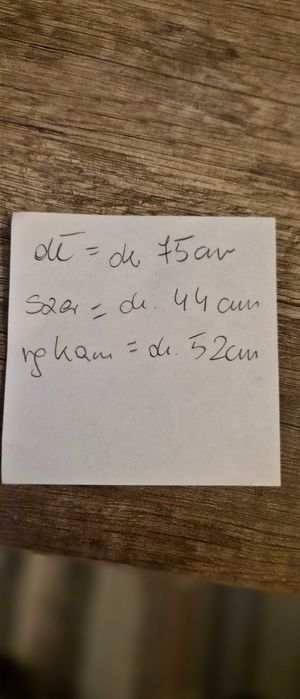 dł = ok 75cm
szer = ok. 44 cm
rękaw = ok. 52cm